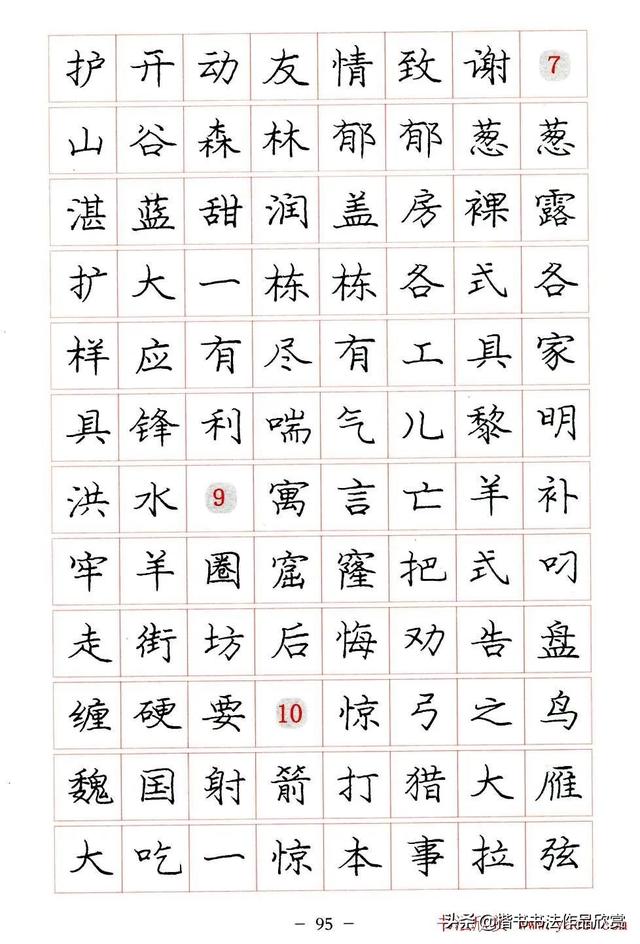 护开动友情致谢7
山谷森林郁郁葱葱
湛蓝甜润盖房裸露
扩大一栋栋各式各
样应有尽有工具家
具锋利喘气儿黎明
洪水9寓言亡羊补
牢羊圈窟窿把式叼
走街坊后悔劝告盘
缠硬要10惊弓之鸟
魏国射箭打猎大雁
大吃一惊本事拉弦
- 95 -
头条@楷书书法作品欣赏